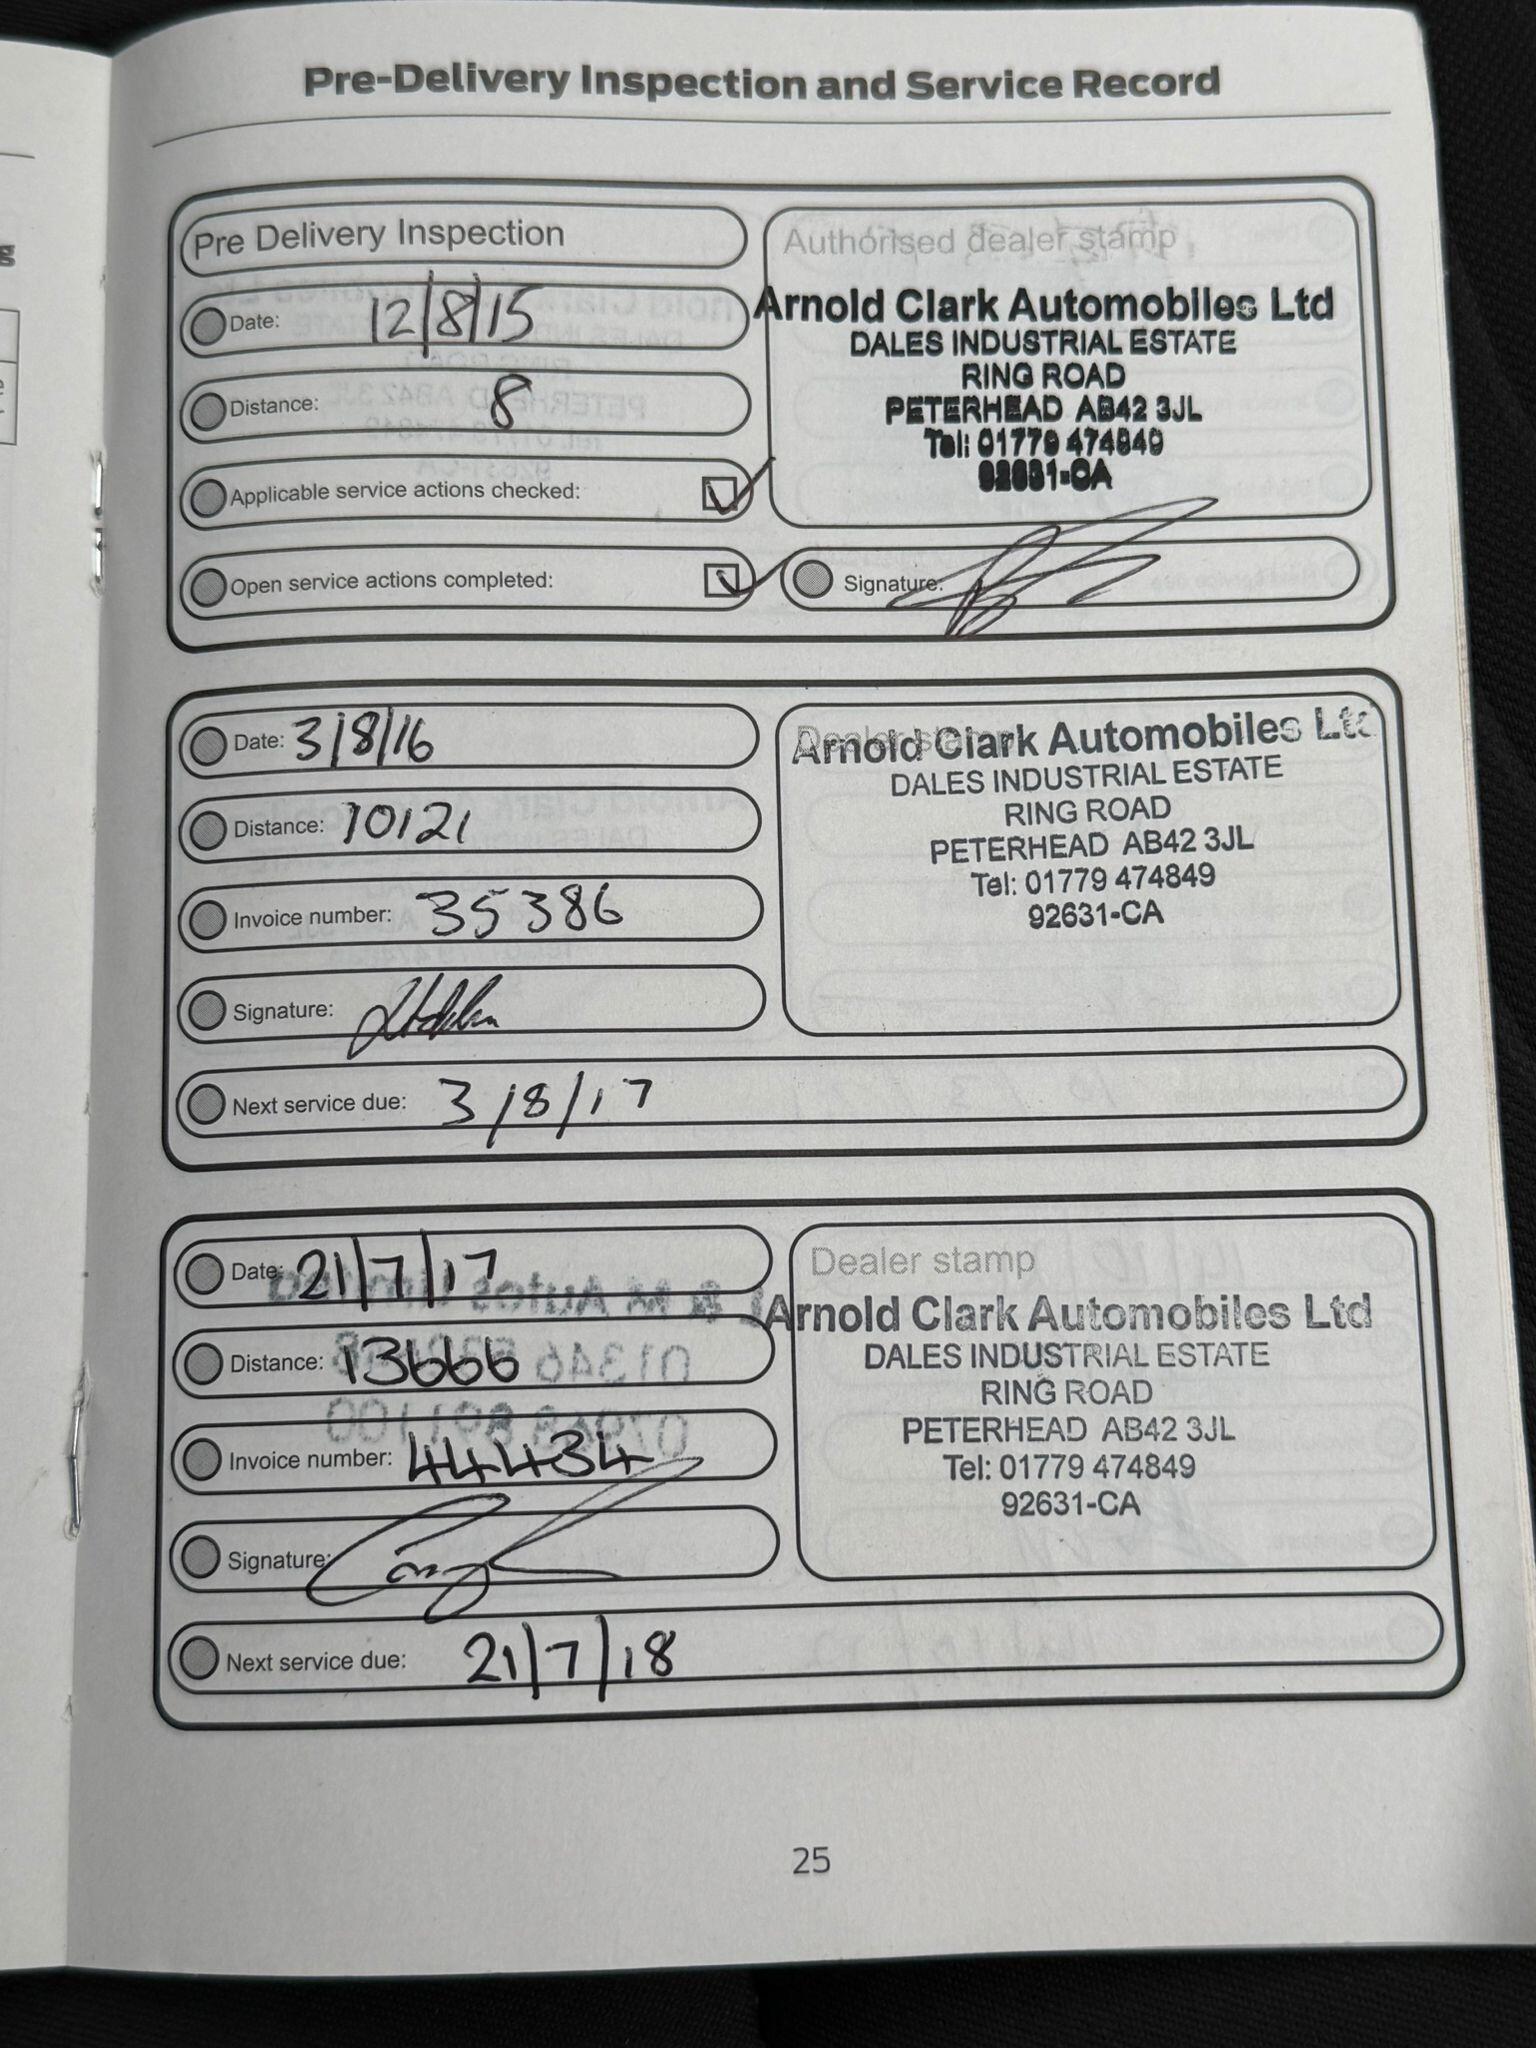 Pre-Delivery Inspection and Service Record
Pre Delivery Inspection
Date: 12/8/15
Distance: 8
Applicable service actions checked:
Open service actions completed:
Authorised dealer stamp
Arnold Clark Automobiles Ltd
DALES INDUSTRIAL ESTATE
RING ROAD
PETERHEAD AB42 3JL
Tel: 01779 474849
92631-CA
Signature:
Date: 3/8/16
Distance: 10121
Invoice number: 35386
Signature:
Dealer stamp
Arnold Clark Automobiles Ltd
DALES INDUSTRIAL ESTATE
RING ROAD
PETERHEAD AB42 3JL
Tel: 01779 474849
92631-CA
Next service due: 3/8/17
Date: 21/7/17
Distance: 13666
Invoice number: 44434
Signature:
Dealer stamp
Arnold Clark Automobiles Ltd
DALES INDUSTRIAL ESTATE
RING ROAD
PETERHEAD AB42 3JL
Tel: 01779 474849
92631-CA
Next service due: 21/7/18
25